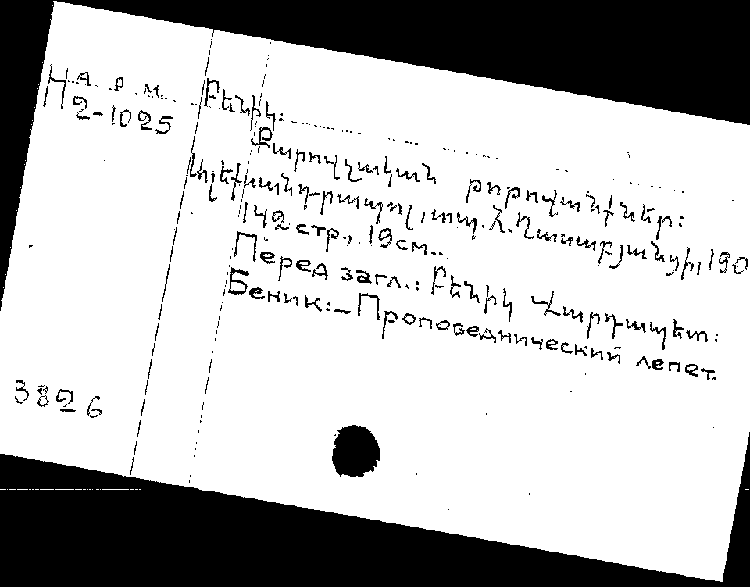 Н а.р.м.
2-1025
Բենիկ:
Քարոզչական թոթովանքներ:
Ալեքսանդրապոլ, տպ. Հ. Ղասաբյանցի, 190
142 стр., 19 см..
Перед загл.: Բենիկ Վարդապետ:
Беник:– Проповеднический лепет.
3826